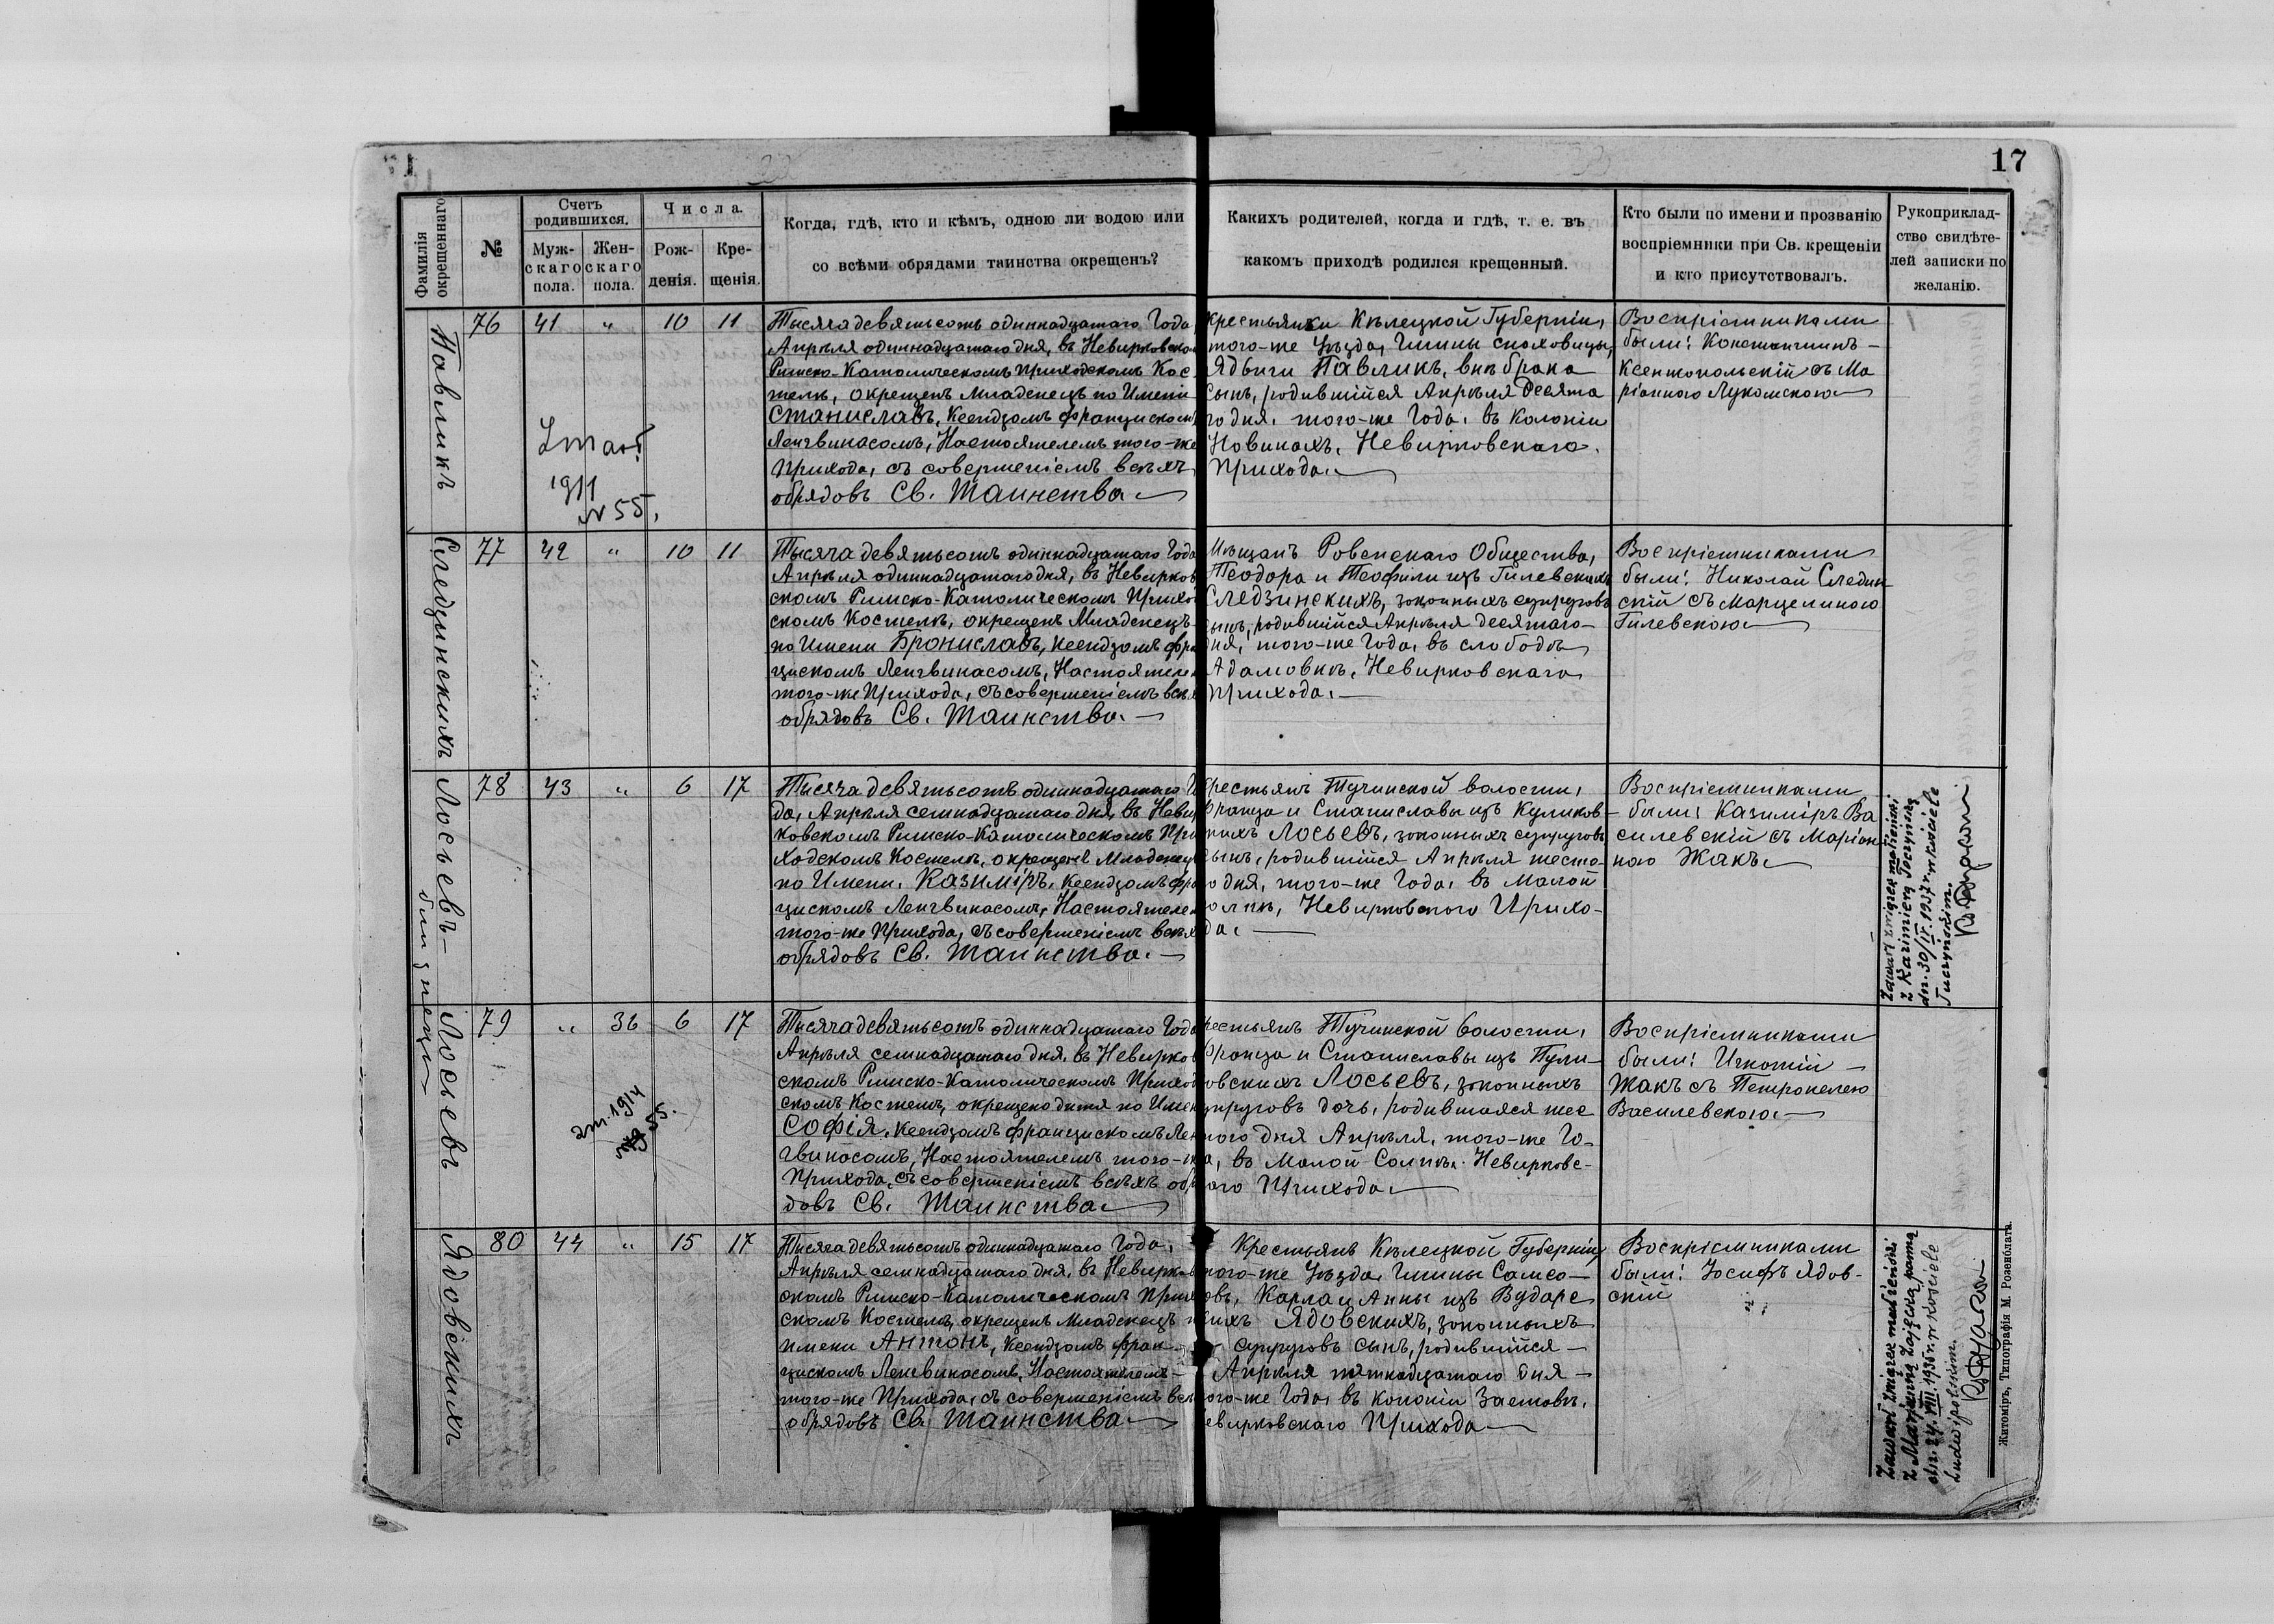 17
Фамилія окрещеннаго
№
Счетъ родившихся.
Муж-
скаго
пола.
Жен-
скаго
пола.
Числа.
Рож-
денія.
Кре-
щенія.
Когда, гдѣ, кто и кѣмъ, одною ли водою или
со всѣми обрядами таинства окрещенъ?
Какихъ родителей, когда и гдѣ, т. е. въ
какомъ приходѣ родился крещенный.
Кто были по имени и прозванію
воспріемники при Св. крещеніи
и кто присутствовалъ.
Рукоприклад-
ство свидѣте-
лей записки по
желанію.
Павликъ
76 41 " 10 11
Zmarł
1911
N 55.
Тысяча девятьсотъ одиннадцатаго Года
Апрѣля одиннадцатаго дня, въ Невирковско
Римско-Католическомъ Приходскомъ Кос-
телѣ, окрещенъ Младенецъ по Имени
Станиславъ, Ксендзомъ Францискомъ
Ленгвинасомъ, Настоятелемъ того-же
Прихода, съ совершеніемъ всѣхъ
обрядовъ Св. Таинства.
Крестьянки Кѣлецкой Губерніи,
того-же Уѣзда, Гмины
Ядвиги Павликъ, внѣ брака
сынъ, родившійся Апрѣля Десята
го дня, того-же Года, въ Колоніи
Новинахъ, Невирковскаго
Прихода.
Воспріемниками
были: Константинъ
Ксентопольскій съ Ма
ріанною Лукомскою
Следзинскихъ
77 42 " 10 11
Тысяча девятьсотъ одиннадцатаго Года
Апрѣля одиннадцатаго дня, въ Невирков
скомъ Римско-Католическомъ Прихо
скомъ Костелѣ, окрещенъ Младенецъ
по Имени Брониславъ, Ксендзомъ Фра
цискомъ Ленгвинасомъ, Настоятеле
того-же Прихода, съ совершеніемъ всѣх
обрядовъ Св. Таинства.
Мѣщанъ Ровенскаго Общества,
Теодора и Теофили изъ Гилевскихъ
Следзинскихъ, законныхъ супруговъ
сынъ, родившійся Апрѣля десятаго
дня, того-же Года, въ слободѣ
Адамовкѣ, Невирковскаго
Прихода.
Воспріемниками
были: Николай Следзин
скій съ Марцелиною
Гилевскою
Лосьевъ
близнецы
78 43 " 6 17
Тысяча девятьсотъ одиннадцатаго Го
да, Апрѣля семнадцатаго дня, въ Невир
ковскомъ Римско-Католическомъ При
ходскомъ Костелѣ, окрещенъ Младенецъ
по Имени, Казиміръ, Ксендзомъ Фра
цискомъ Ленгвинасомъ, Настоятеле
того-же Прихода, съ совершеніемъ всѣх
обрядовъ Св. Таинства.
Крестьянъ Тучинской волости,
Франца и Станиславы изъ Куликов-
скихъ Лосьевъ, законныхъ супруговъ
сынъ, родившійся Апрѣля шеста
го дня, того-же Года, въ Малой
Солпѣ, Невирковскаго Прихо-
да.
Воспріемниками
были: Казиміръ Ва
силевскій съ Маріан
ною Жакъ.
Zawarł związek małżeński
z Kazimierą
dn. 30/IV. 1937 r. w kościele
Tuczyńskim.
Лосьевъ
79 " 36 6 17
zm. 1914
55.
Тысяча девятьсотъ одиннадцатаго Года
Апрѣля семнадцатаго дня, въ Невирков
скомъ Римско-Католическомъ Приход
скомъ Костелѣ, окрещено дитя по Имен
Софія, Ксендзомъ Францискомъ Лен
гвинасомъ, Настоятелемъ того-же
Прихода, съ совершеніемъ всѣхъ обря
довъ Св. Таинства.
Крестьянъ Тучинской волости,
Франца и Станиславы изъ Кули-
ковскихъ Лосьевъ, законныхъ
супруговъ дочь, родившаяся шес
таго дня Апрѣля, того-же Го-
да, въ Малой-Солпѣ, Невирковс-
каго Прихода.
Воспріемниками
были: Игнатій
Жакъ съ Петронелею
Василевскою.
Ядовскихъ
80 44 " 15 17
Тысяча девятьсотъ одиннадцатаго Года,
Апрѣля семнадцатаго дня, въ Невирков
скомъ Римско-Католическомъ Прихо
скомъ Костелѣ, окрещенъ Младенецъ п
имени Антонъ, Ксендзомъ Фран-
цискомъ Ленгвинасомъ, Настоятелемъ
того-же Прихода, съ совершеніемъ всѣ
обрядовъ Св. Таинства
Крестьянъ Кѣлецкой Губерніи,
того-же Уѣзда, Гмины Самсо-
новъ, Карла и Анны изъ Вударс
кихъ Ядовскихъ, законныхъ
супруговъ сынъ, родившійся
Апрѣля пятнадцатаго дня
того-же Года, въ колоніи Заставѣ,
Невирковскаго Прихода
Воспріемниками
были: Іосифъ Ядов-
скій
Zawarł związek małżeński
z Marjanną Zajączką panną
dn. 24. VIII. 1935 r. w kościele
Ludwipolskim.
Житоміръ, Типографія М. Розенблата.